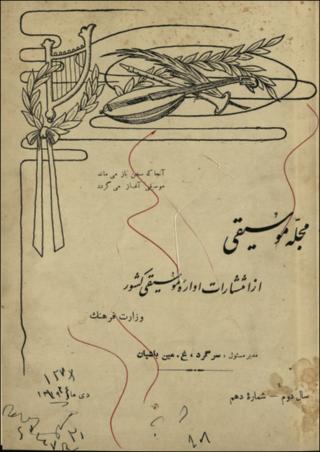 آنجا که سخن باز می ماند
موسیقی آغاز می گردد
مجله موسیقی
از انتشارات اداره موسیقی کشور
وزارت فرهنگ
مدیر مسئول ، سرگرد، غ . مین باشیان
دی ماه
سال دوم - شمارهٔ دهم